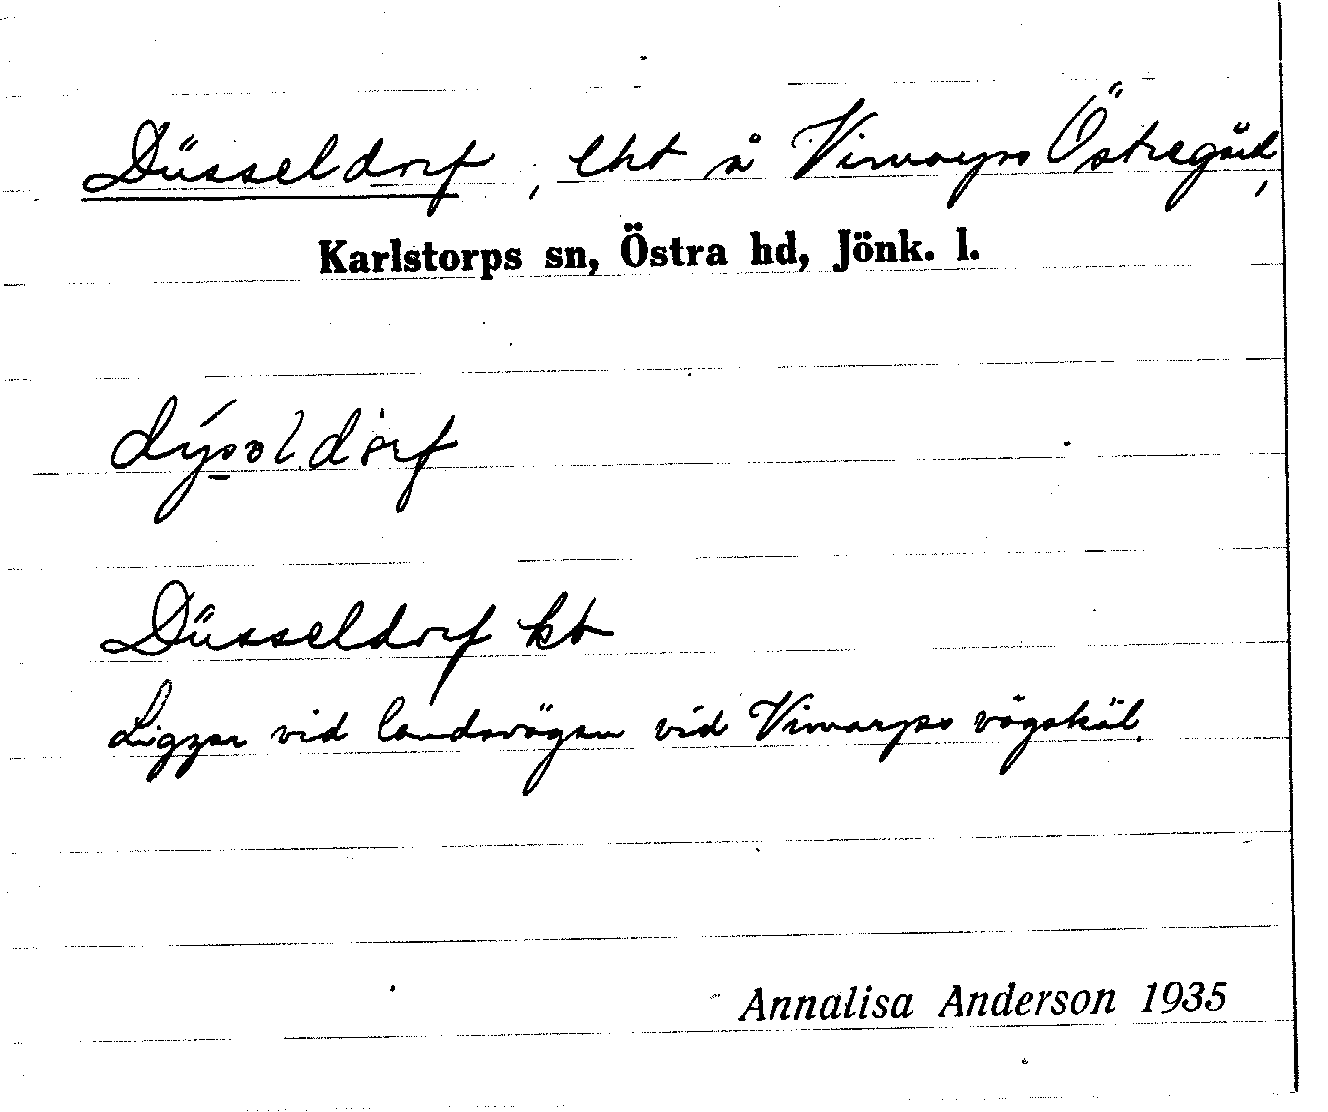 Düsseldorf, lht å Vimarps Östregård,
Karlstorps sn, Östra hd, Jönk. l.
Düsseldorf kt
Ligger vid landsvägen vid Vimarps vägskäl.
Annalisa Anderson 1935